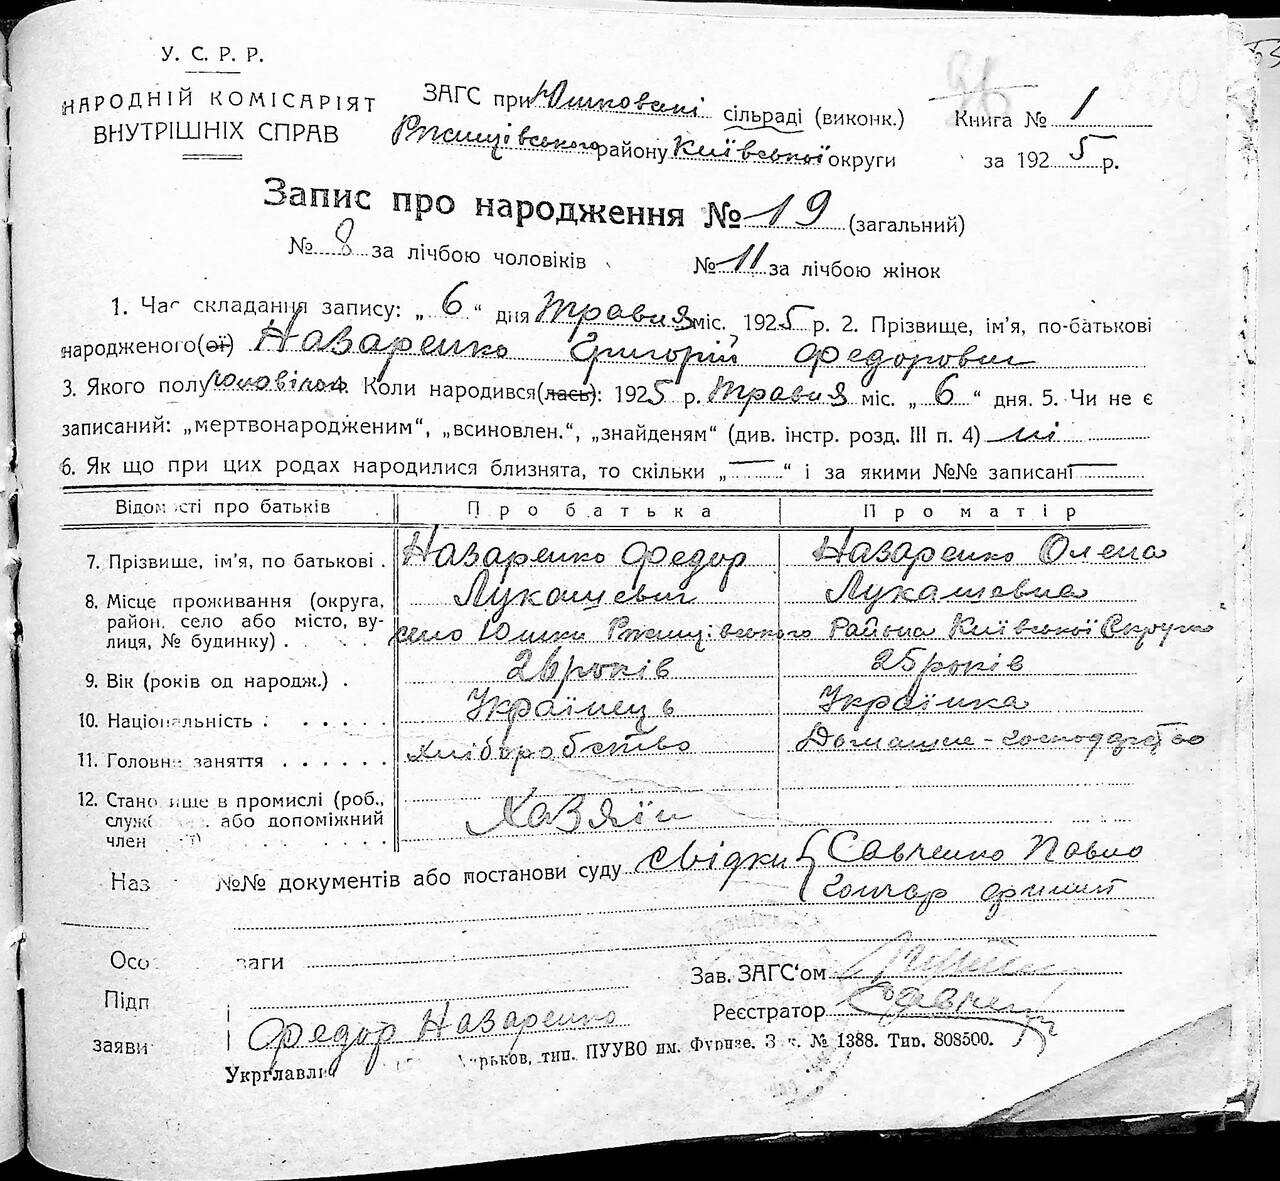 У. С. Р. Р.
НАРОДНІЙ КОМІСАРІЯТ
ВНУТРІШНІХ СПРАВ
ЗАГС при сільраді (виконк.)
Ржищівського району Київської округи
Книга № 1
за 1925 р.
Запис про народження № 19 (загальний)
№ 8 за лічбою чоловіків № 11 за лічбою жінок
1. Час складання запису: „ 6 “ дня Травня міс. 1925 р. 2. Прізвище, ім'я, по-батькові
народженого(ої) Назаренко Григорій Федорович
3. Якого полу Коли народився(лась): 1925 р. Травня міс. „ 6 “ дня. 5. Чи не є
записаний: „мертвонародженим“, „всиновлен.“, „знайденям“ (див. інстр. розд. III п. 4) ні
6. Як що при цих родах народилися близнята, то скільки „ — “ і за якими №№ записані —
Відомості про батьків Про батька Про матір
7. Прізвище, ім'я, по батькові . Назаренко Федор Назаренко Олена
Лукашевич Лукашевна
8. Місце проживання (округа,
район, село або місто, ву-
лиця, № будинку) . село Юшки Ржищівського Района Київської Округи
9. Вік (років од народж.) . 26 років 25 років
10. Національність . Українець Українка
11. Головне заняття . . . . . . Хліборобство Домашнє-господарство
12. Стано ище в промислі (роб.,
служ або допоміжний
член Хазяїн
Наз №№ документів або постанови суду свідки { Савченко Павло
Гончар
Осо ваги
Зав. ЗАГС'ом
Підп
Реєстратор Савченко
заяви Федор Назаренко
Укрглавлі рьков, тип. ПУУВО им. Фрунзе. З к. № 1388. Тир. 808500.